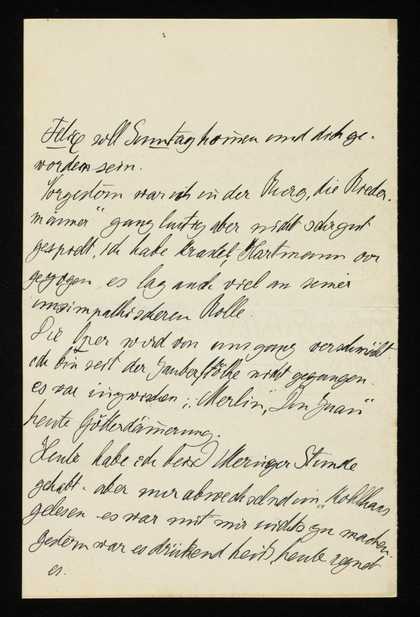 Felix soll Sonntag kommen und dick ge-
worden sein.
Vorgestern war ich in der Burg, die Bieder-
männer" ganz lustig aber nicht sehr gut
gespielt, ich habe Hartmann vor
gezogen, es lag auch viel an seiner
unsimpathischeren Rolle.
Die Oper wird von uns ganz verschmäht
ich bin seit der Zauberflöte nicht gegangen.
es war inzwischen: "Merlin, Don Juan"
heute Götterdämmerung.
Heute habe ich bei Meringer Stunde
gehabt. aber nur abwechselnd im "Kohlhaas
gelesen es war mit mir nichts zu machen.
gestern war es drückend heiß, heute regnet
es.